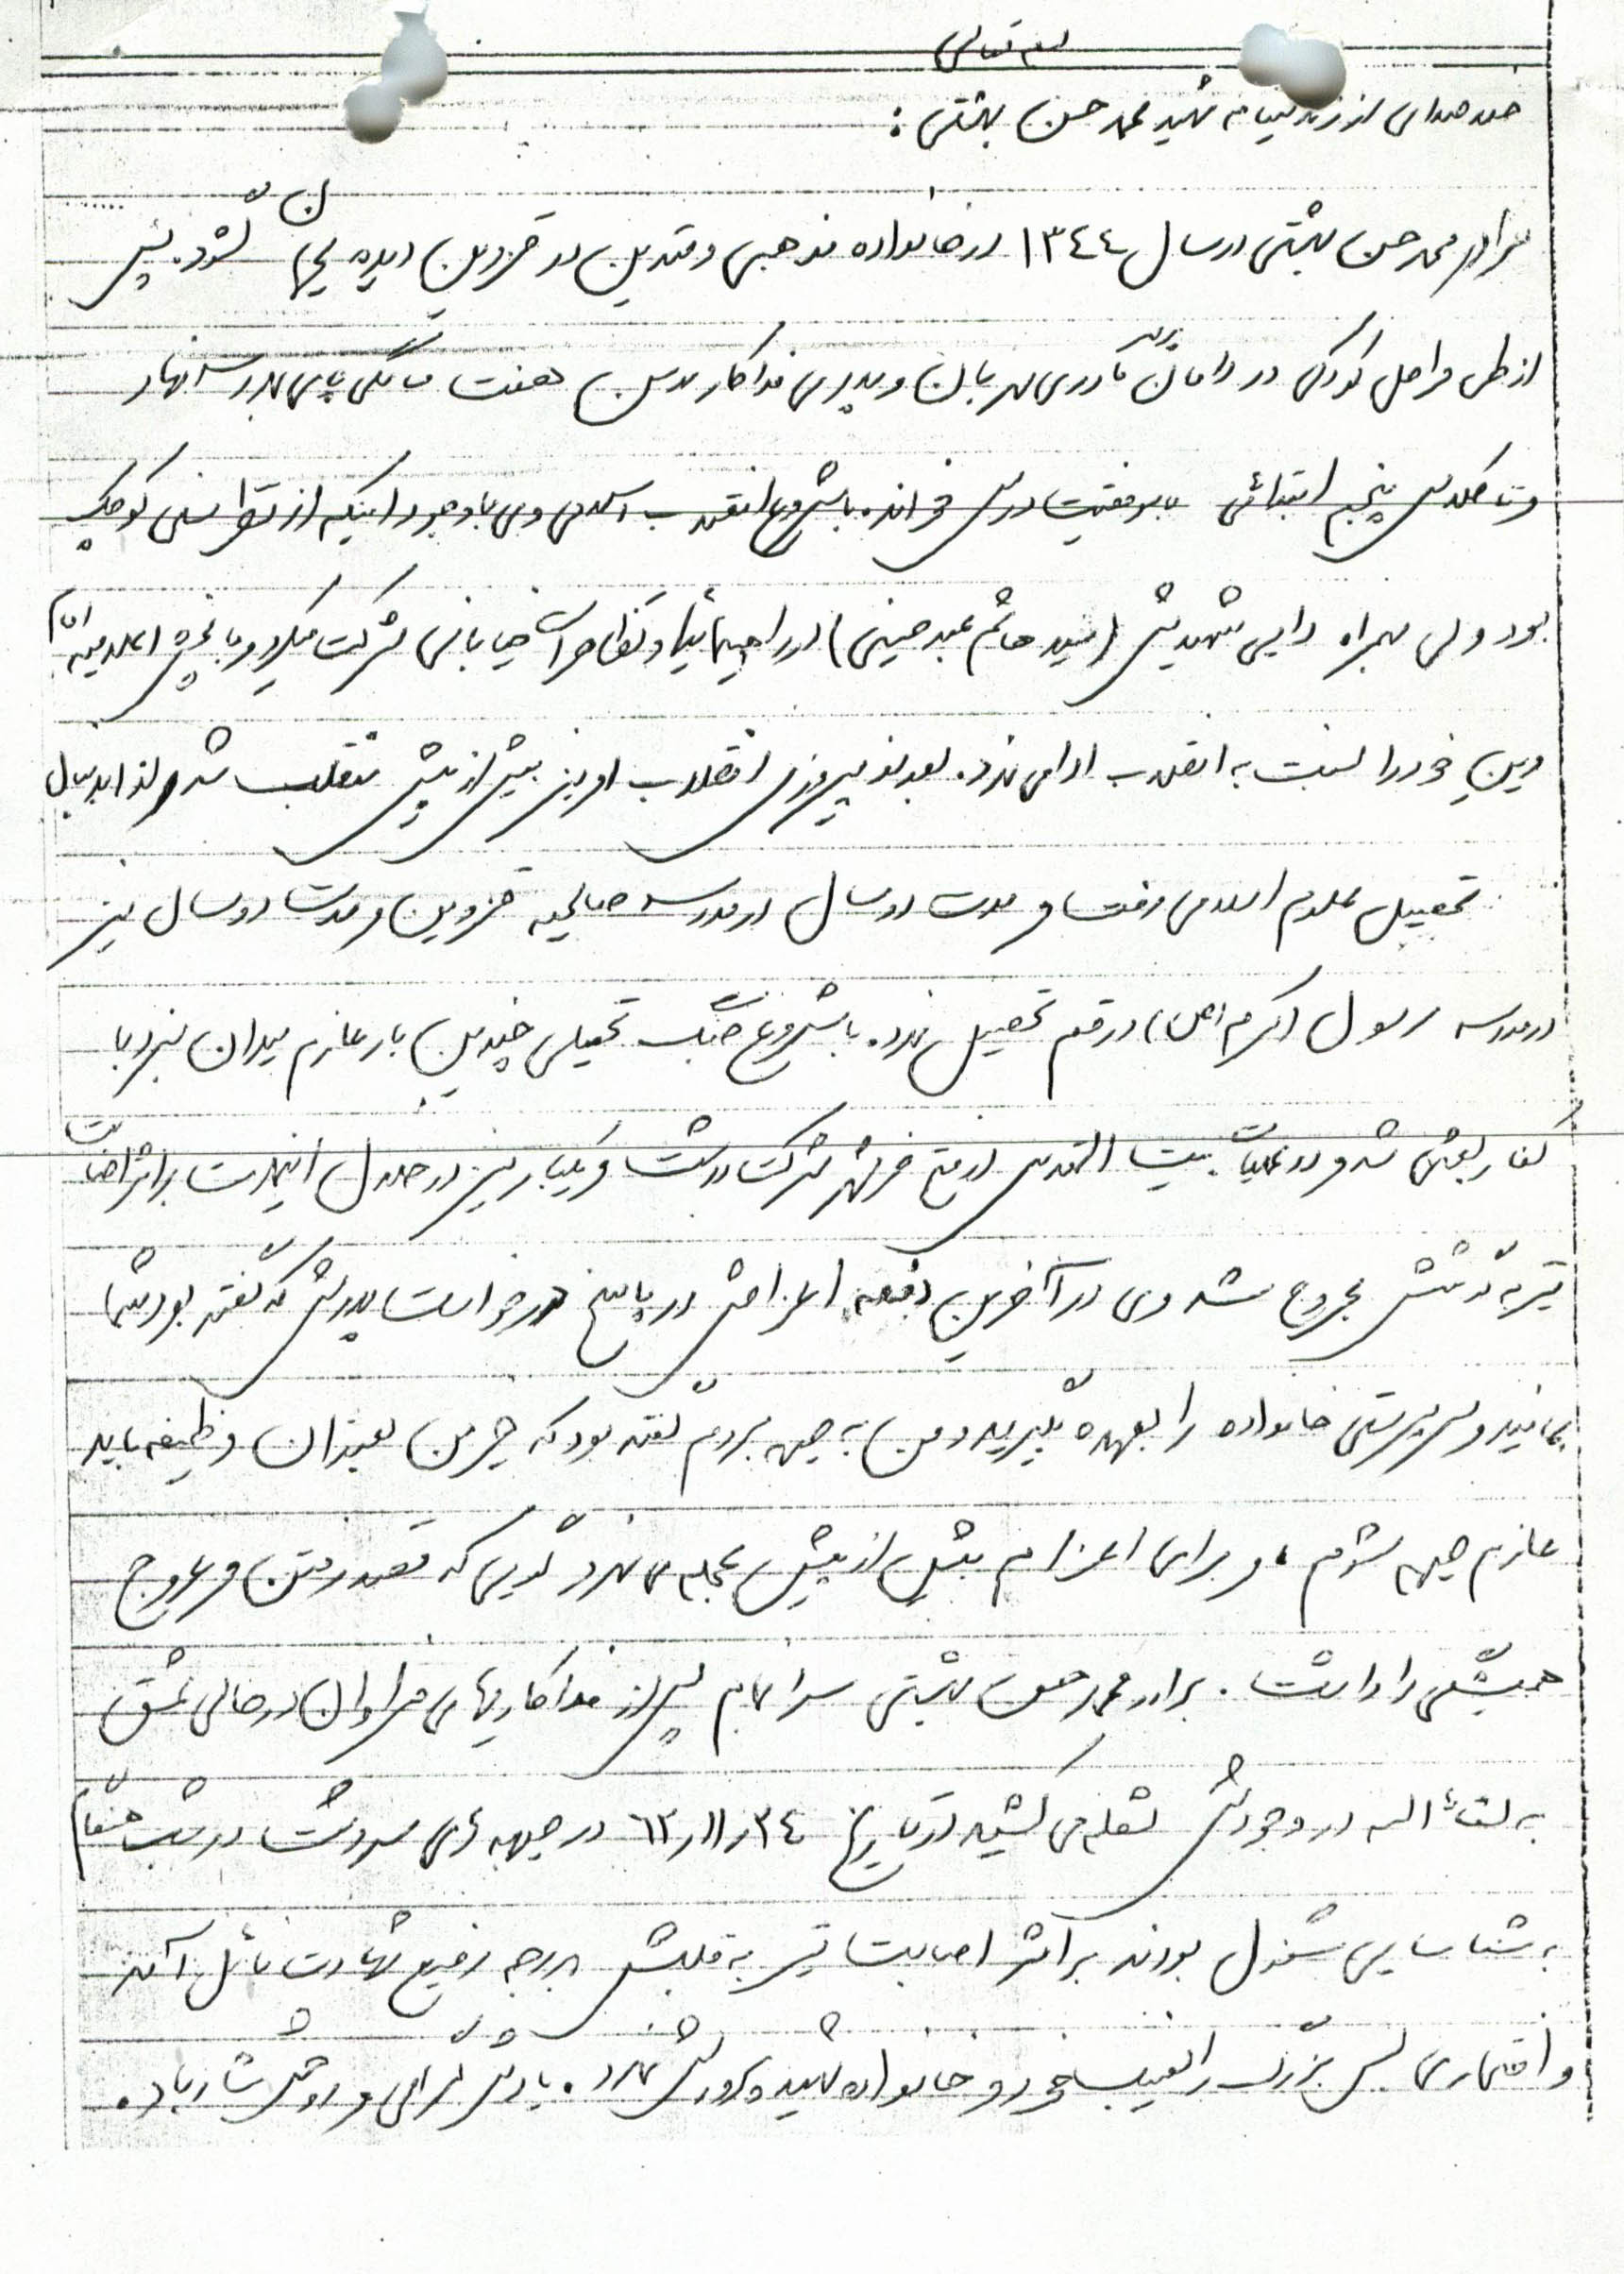 بسمه تعالی
خلاصه‌ای از زندگینامه شهید محمد حسن بهشتی :
برادر محمد حسن بهشتی در سال ١٣٤٤ در خانواده مذهبی و متدین در قزوین دیده بجهان گشود. پس
از طی مراحل کودکی در دامان پرمهر مادری مهربان و پدری فداکار در سن هفت سالگی پای بمدرسه نهاد
و تا کلاس پنجم ابتدائی با موفقیت درس خواند. با شروع انقلاب اسلامی وی با وجود اینکه از نظر سنی کوچک
بود ولی همراه دایی شهیدش (سید هاشم عبد حسینی) در راهپیمائیها و تظاهرات خیابانی شرکت میکرد و با پخش اعلامیه امام
دین خود را نسبت به انقلاب ادا می‌کرد. بعد از پیروزی انقلاب او نیز بیش از پیش منقلب شد و لذا بدنبال
تحصیل علوم اسلامی رفت و مدت دو سال در مدرسه صالحیه قزوین و مدت دو سال نیز
در مدرسه رسول اکرم (ص) در قم تحصیل کرد. با شروع جنگ تحمیلی چندین بار عازم میدان نبرد با
کفار بعثی شد و در عملیات بیت المقدس در فتح خرمشهر شرکت داشت و یکبار نیز در خلال این مدت بر اثر اصابت
تیر به دستش مجروح شد وی در آخرین دفعه اعزامش در پاسخ درخواست پدرش که گفته بود شما
بمانید و سرپرستی خانواده را بعهده بگیرید و من به جبهه بروم گفته بود که خیر من بعنوان وظیفه باید
عازم جبهه شوم ، و برای اعزام بیش از پیش عجله می‌کرد گویی که قصد رفتن و عروج
همیشگی را داشت . برادر محمد حسن بهشتی سرانجام پس از فداکاریهای فراوان در حالی عشق
به لقاء الله در وجودش شعله می کشید در تاریخ ٢٤ر١١ر٦٣ در جبهه‌ی سردشت در شب هنگام
به شناسایی مشغول بودند بر اثر اصابت تیر به قلبش بدرجه رفیع شهادت نائل آمد
و افتخاری بس بزرگ را نصیب خود و خانواده شهید پرورش کرد . یادش گرامی و روحش شاد باد.